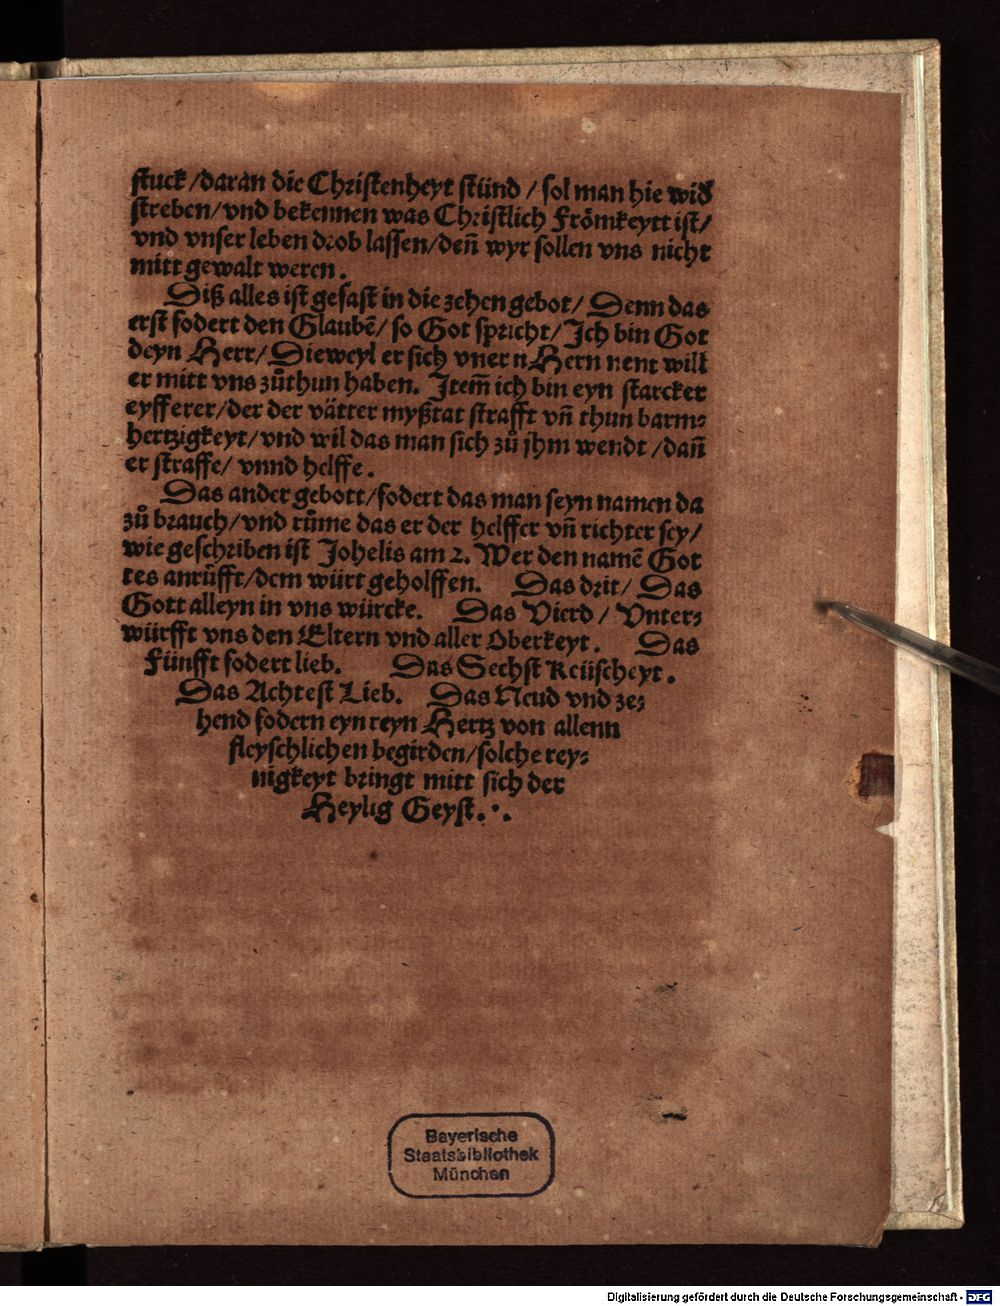 stuck/daran die Christenheyt stünd/sol man hie wid
streben/vnd bekennen was Christlich Frömkeytt ist/
vnd vnser leben drob lassen/deñ wyr sollen vns nicht
mitt gewalt weren.
Diß alles ist gefast in die zehen gebot/Denn das
erst fodert den Glaubē/so Got spricht/Ich bin Got
deyn Herr/Dieweyl er sich vnern Hern nent will
er mitt vns zůthun haben. Item̃ ich bin eyn starcker
eyfferer/der der vätter myßtat strafft vñ thun barm⸗
hertzigkeyt/vnd wil das man sich zů jhm wendt/dañ
er straffe/vnnd helffe.
Das ander gebott/fodert das man seyn namen da
zů brauch/vnd růme das er der helffer vñ richter sey/
wie geschriben ist Johelis am 2. Wer den namē Got
tes anrůfft/dem würt geholffen. Das drit/Das
Gott alleyn in vns würcke. Das Vierd/Vnter⸗
würfft vns den Eltern vnd aller Oberkeyt. Das
Fünfft fodert lieb. Das Sechst Keüscheyt.
Das Achtest Lieb. Das Neud vnd ze⸗
hend fodern eyn reyn Hertz von allenn
fleyschlichen begirden/solche rey⸗
nigkeyt bringt mitt sich der
Heylig Geyst.·.
Bayerische
Staatsbibliothek
München
Digitalisierung gefördert durch die Deutsche Forschungsgemeinschaft - DFG